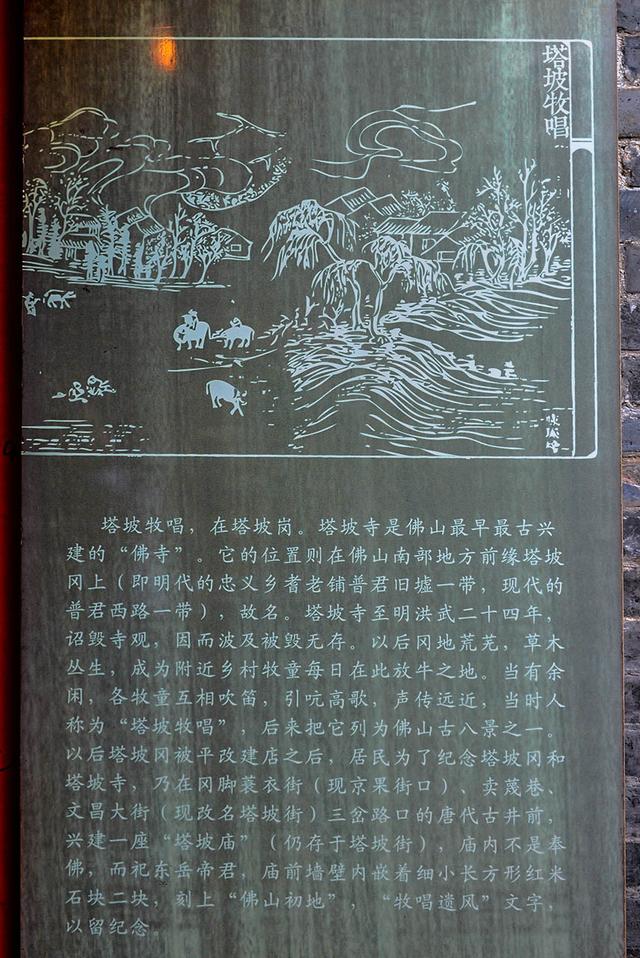 塔坡牧唱
塔坡牧唱，在塔坡岗。塔坡寺是佛山最早最古兴
建的“佛寺”。它的位置则在佛山南部地方前缘塔坡
冈上（即明代的忠义乡耆老铺普君旧墟一带，现代的
普君西路一带），故名。塔坡寺至明洪武二十四年，
诏毁寺观，因而波及被毁无存。以后冈地荒芜，草木
丛生，成为附近乡村牧童每日在此放牛之地。当有余
闲，各牧童互相吹笛，引吭高歌，声传远近，当时人
称为“塔坡牧唱”，后来把它列为佛山古八景之一。
以后塔坡冈被平改建店之后，居民为了纪念塔坡冈和
塔坡寺，乃在冈脚蓑衣街（现京果街口）、卖蔑巷、
文昌大街（现改名塔坡街）三岔路口的唐代古井前，
兴建一座“塔坡庙”（仍存于塔坡街），庙内不是奉
佛，而祀东岳帝君，庙前墙壁内嵌着细小长方形红米
石块二块，刻上“佛山初地”，“牧唱遗风”文字，
以留纪念。